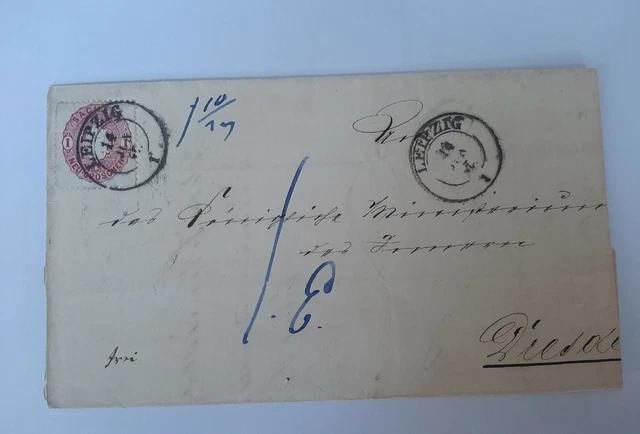 SAC
1
NEUGROSCHEN
LEIPZIG
14
I
10/17
An
LEIPZIG
14
I
das Königliche Ministerium
des Innern
1. E.
Dresde
frei